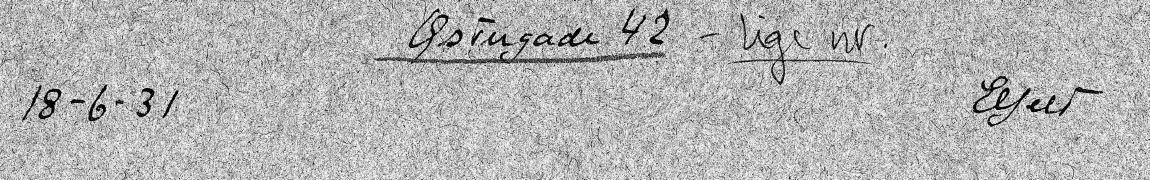 Østergade 42 - lige nr.
18-6-31 Elfelt